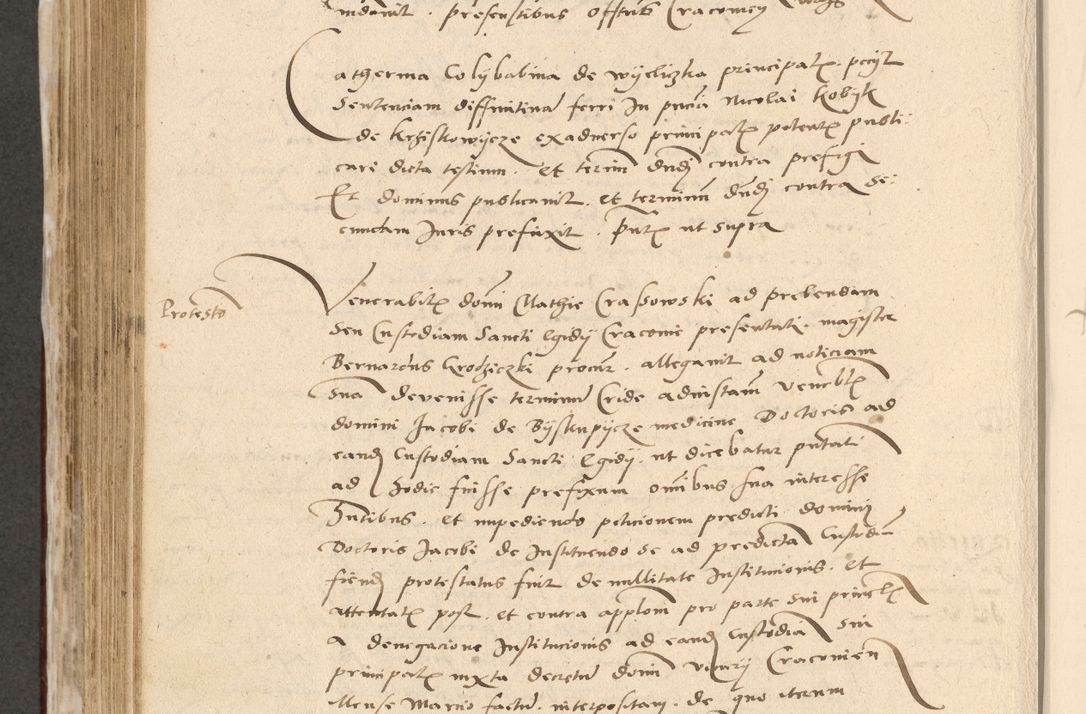 presentibus Cracoviey
Catherina Colybabina de Wyeliczka principal. pecyt
Sentenciam diffinitivam ferri In pncia Nicolai Kobyk
de Krziskowycze exadverso principalis potentis publi-
cari dicta testium. et termin dndj contra prefigi
Et dominus publicavit. et terminum dndj contra se-
cundam Juris prefixit. Pntib ut supra
Protesto
Venerabil domi Mathie Crassowski ad prebendam
seu Custodiam Sancti Egidij Cracovie presentati. magister
Bernardus Krodziczki procur. allegavit ad noticiam
suam devenisse terminum Cride ad instam venerblis
domini Jacobi de Bystrzpycze medicine Doctoris ad
eandj Custodiam Sancti Egidij. ut dicebatur pntati
ad hodie fuisse prefixum omibus sua interesse
Pntibus. et impediendo peticionem predicti domini
Doctoris Jacobi de Instituendo se ad predictam Custodiam
fiendj protestatus fuit de nullitate Institucionis. et
attentatis post. et contra applom pro parte sui principlis
a denegacione Institucionis ad eandj Custodiam sui
principalis iuxta decretum domi vicarij Cracovien
Mense Marcio factum. interpositam. de quo iterum